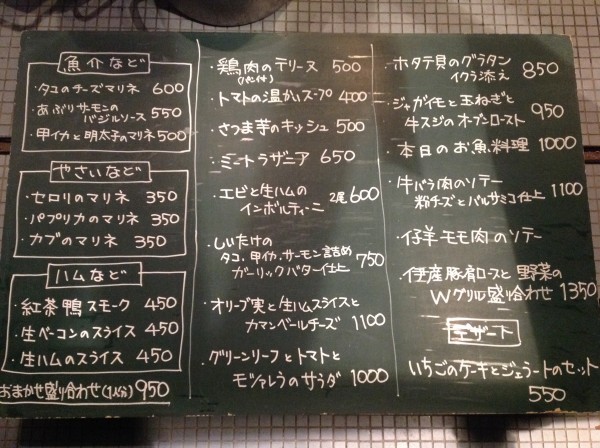 魚介など
・タコのチーズマリネ 600
・あぶりサーモンの
バジルソース 550
・甲イカと明太子のマリネ 500
やさいなど
・セロリのマリネ 350
・パプリカのマリネ 350
・カブのマリネ 350
ハムなど
・紅茶鴨スモーク 450
・生ベーコンのスライス 450
・生ハムのスライス 450
おまかせ盛り合わせ(1人分) 950
・鶏肉のテリーヌ 500
(パン付)
・トマトの温かいスープ 400
・さつま芋のキッシュ 500
・ミートラザニア 650
・エビと生ハムの
インボルティーニ 2尾 600
・しいたけの
タコ、甲イカ、サーモン詰め
ガーリックバター仕上 750
・オリーブ実と生ハムスライスと
カマンベールチーズ 1100
・グリーンリーフとトマトと
モッツァレラのサラダ 1000
・ホタテ貝のグラタン
イクラ添え 850
・ジャガイモと玉ねぎと
牛スジのオーブンロースト 950
・本日のお魚料理 1000
・牛バラ肉のソテー
粉チーズとバルサミコ仕上 1100
・仔羊モモ肉のソテー
・伊産豚肩ロースと野菜の
Wグリル盛り合わせ 1350
デザート
いちごのケーキとジェラートのセット
550